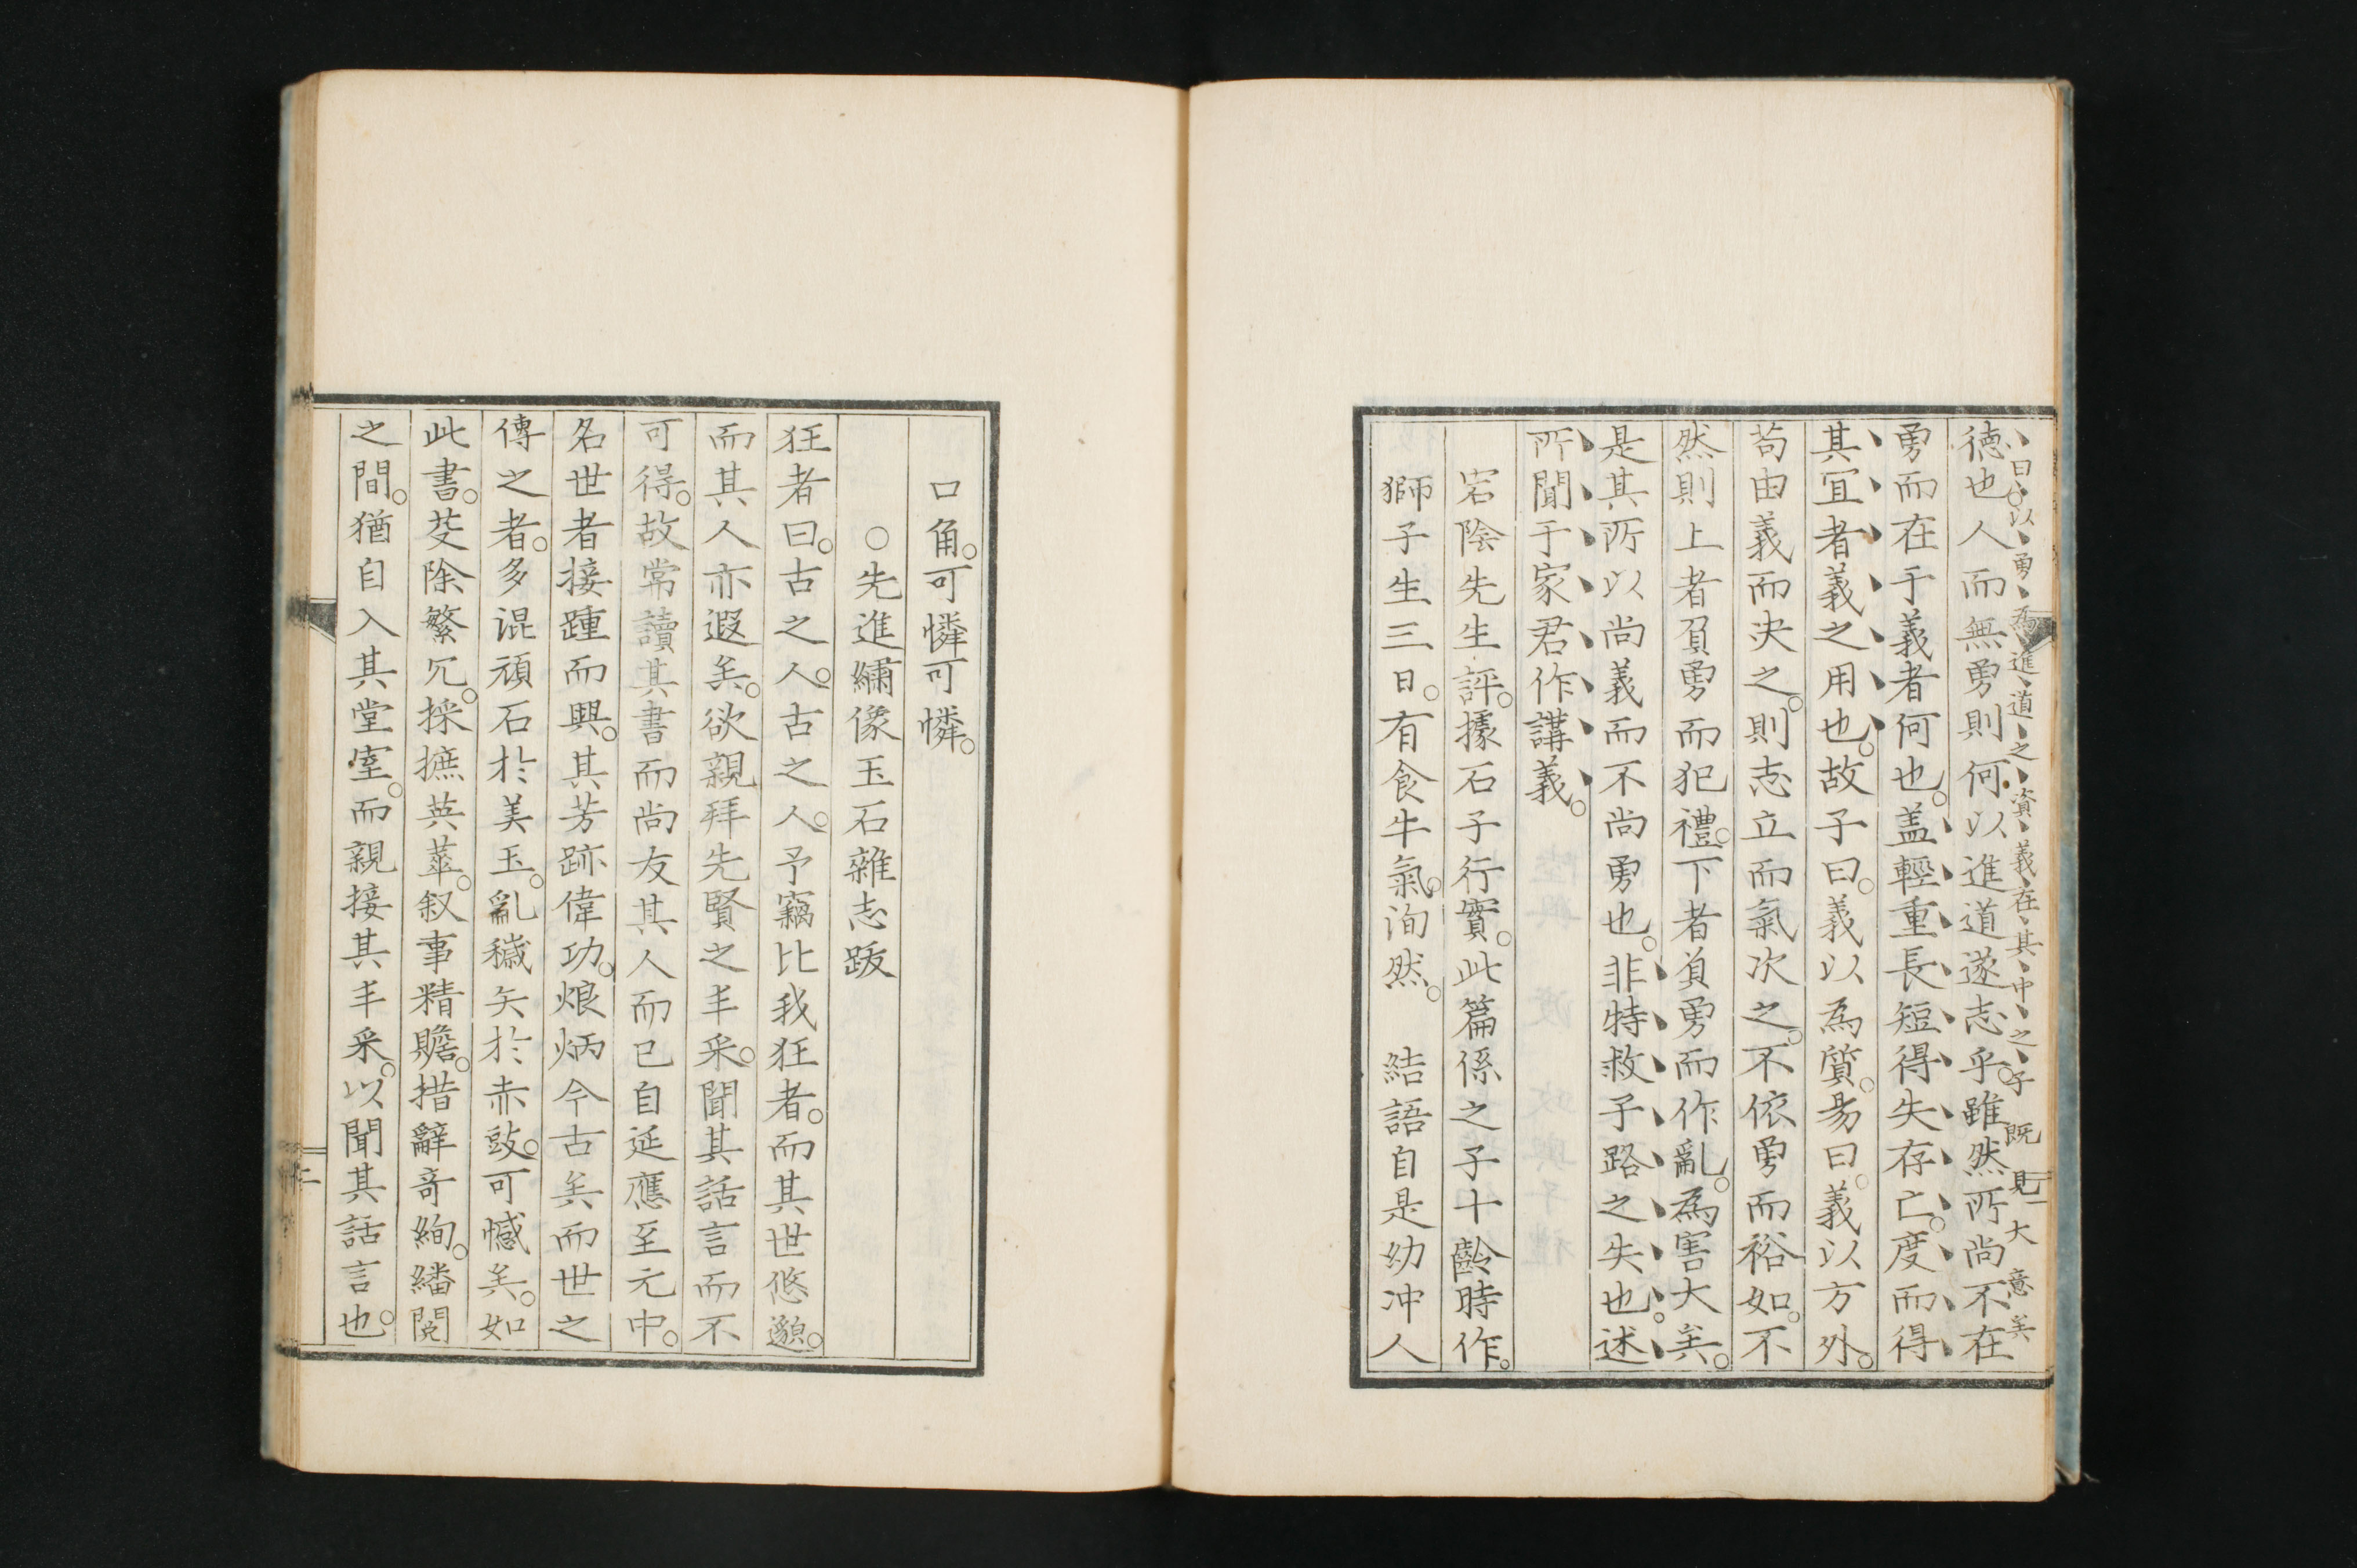 曰以勇為進道之資義在其中之子既見大意矣
徳也人而無勇則何以進道遂志乎雖然所尚不在
勇而在于義者何也盖輕重長短得失存亡度而得
其宜者義之用也故子曰義以為質昜曰義以方外
苟由義而决之則志立而氣次之不依勇而裕如不
然則上者負勇而犯禮下者負勇而作亂為害大矣
是其所以尚義而不尚勇也非特救子路之失也述
所聞于家君作講義
宕陰先生評據石子行實此篇係之子十齡時作
獅子生三日有食牛氣洵然　結語自是幼冲人
口角可憐可憐
○先進繍像玉石雜志跋
狂者曰古之人古之人予竊比我狂者而其世悠邈
而其人亦遐矣欲親拜先賢之丰采聞其話言而不
可得故常讀其書而尚友其人而已自延應至元中
名世者接踵而興其芳跡偉功烺炳今古矣而世之
傳之者多混頑石於美玉亂穢矢於赤豉可憾矣如
此書芟除繁冗採摭英華叙事精贍措辭奇絢繙閲
之間猶自入其堂室而親接其丰采以聞其話言也